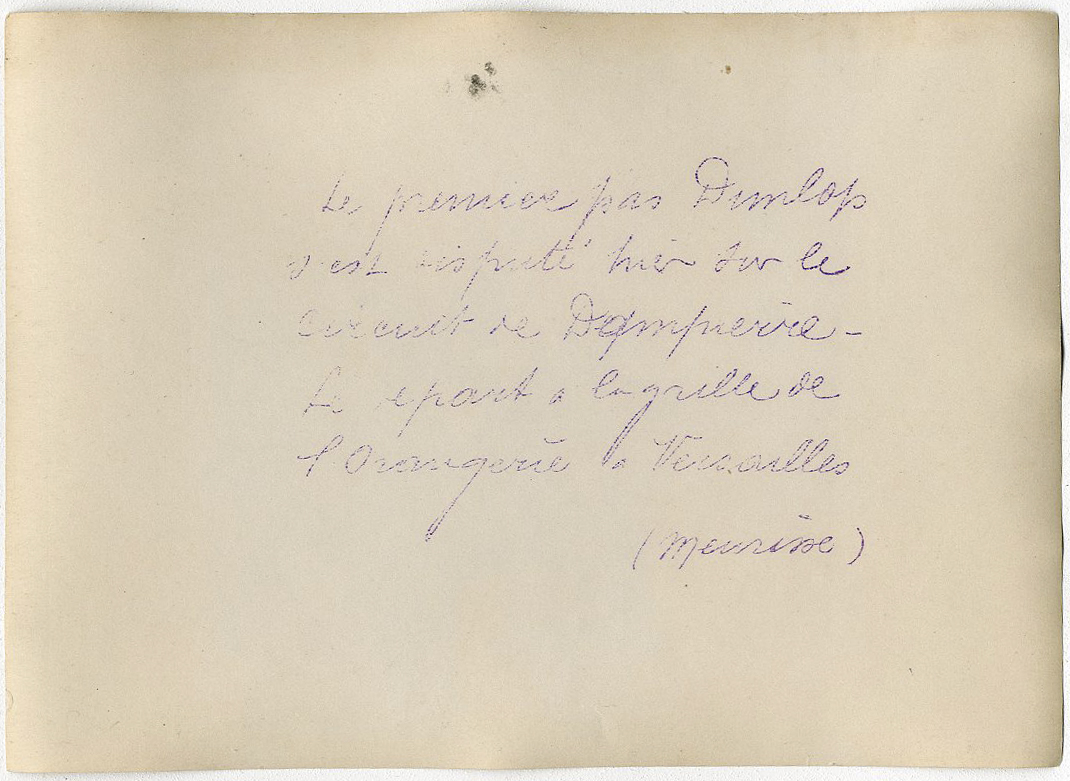 Le premier pas Dunlop
s'est disputé hier sur le
circuit de Dampierre -
Le départ à la grille de
l'Orangerie à Versailles
(Meurisse)